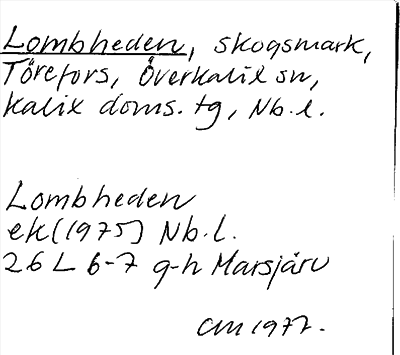 Lombheden, skogsmark,
Törefors, Överkalix sn,
Kalix doms. tg, Nb. l.
Lombheden
ek (1975) Nb. l.
26 L 6-7 g-h Marsjärv
CM 1977.